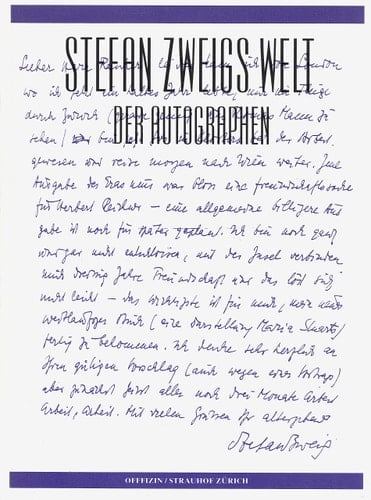 STEFAN ZWEIGS WELT
DER AUTOGRAPHEN
Lieber Herr
London
wo ich jetzt ein halbes Jahr
durch Zürich ( Thomas Mann zu
sehen)
gewesen und reise morgen nach Wien weiter. Jene
Ausgabe des Erasmus war bloss eine
für Herbert Reichner – eine allgemeine billigere Aus
gabe ist noch für später geplant. Ich bin noch ganz
und gar nicht entschlossen, mit der Insel verbinden
mich dreissig Jahre Freundschaft und das löst sich
nicht leicht – das wichtigste ist für mich, mein neues
Buch (eine Darstellung Maria Stuarts)
fertig zu bekommen. Ich danke sehr herzlich an
Ihren gütigen Vorschlag (auch wegen eines Vortrags)
aber zunächst heisst alles noch drei Monate Arbeit
Arbeit, Arbeit. Mit vielen Grüssen Ihr alter
Stefan Zweig
OFFIZIN / STRAUHOF ZÜRICH